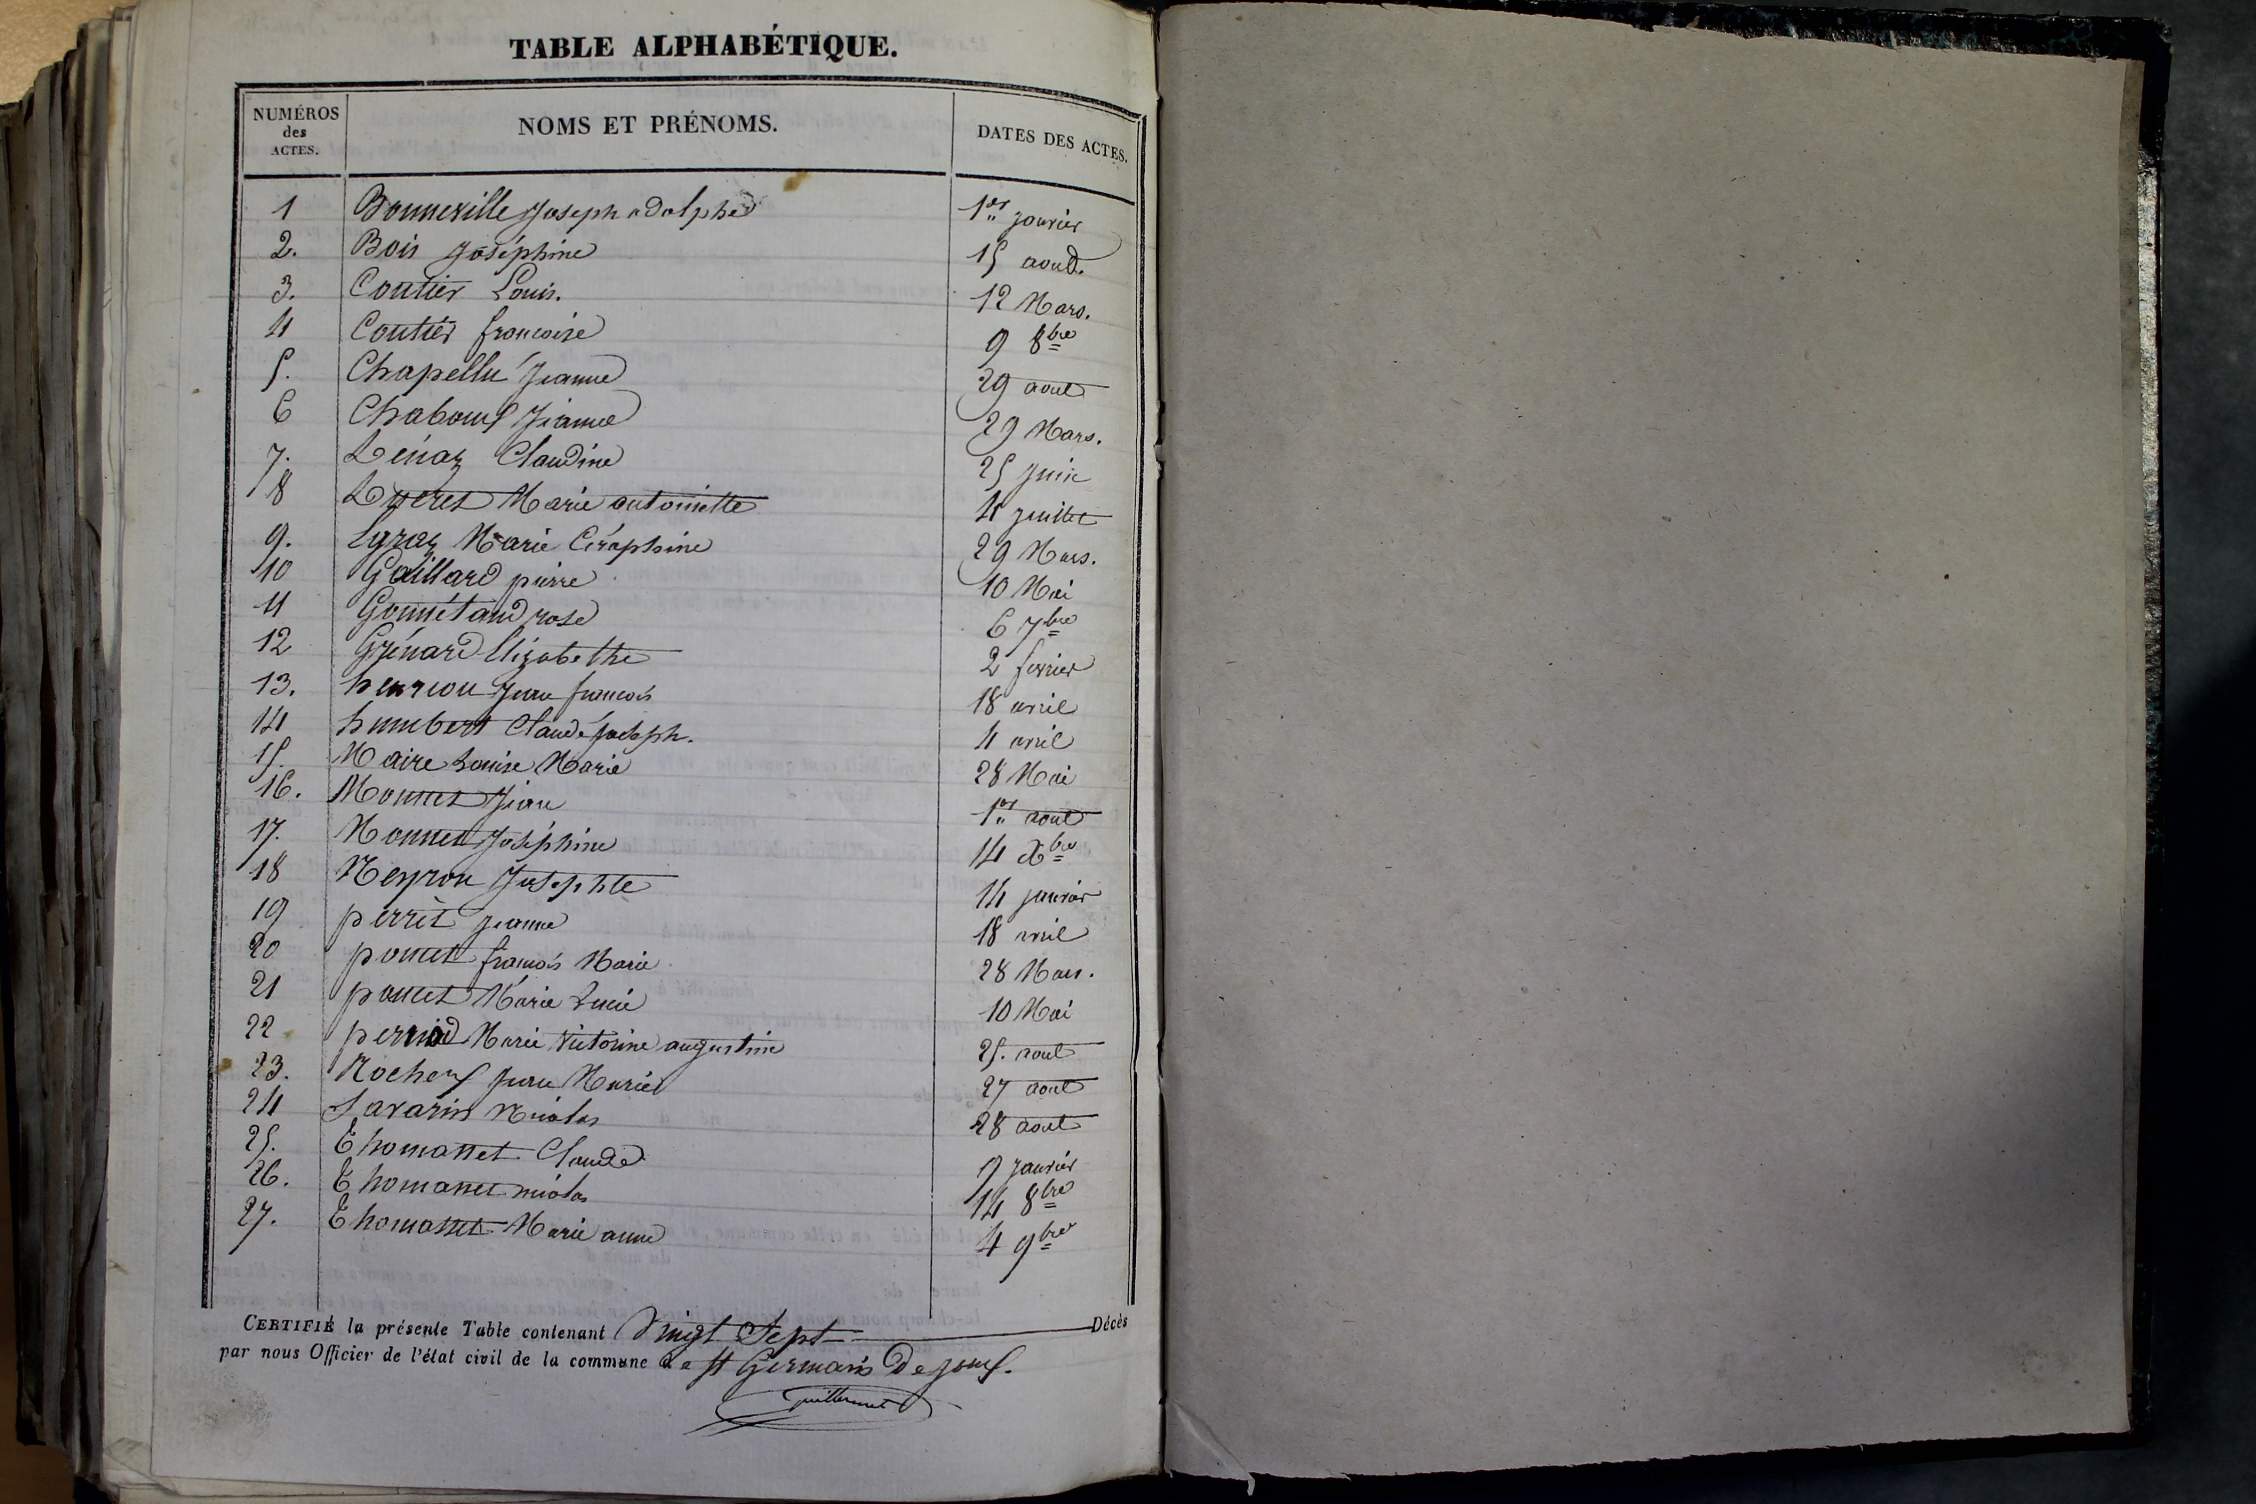 TABLE ALPHABÉTIQUE.
NUMÉROS des ACTES. NOMS ET PRÉNOMS. DATES DES ACTES.
1 Bonneville Joseph adolphe 1er janvier
2. Bois Joséphine 15 aoud.
3. Coutier Louis. 12 Mars.
4 Coutier francoise 9 8bre
5. Chapellu Jeanne 29 aout
6 Chabouf Jeanne 29 Mars.
7. Lénaz Claudine 25 juin
8 Marie antoinette 4 juillet
9. Marie Céraphine 29 Mars.
10 Gaillard pierre 10 Mai
11 Gonnétand rose 6 7bre
12 Grénard Elizabethe 2 fevrier
13. henriou Jean francois 18 avril
14 humbert Claude joseph. 4 avril
15. Maire Louise Marie 28 Mai
16. Monnet Jean 1er aout
17. Monnet Joséphine 14 Xbre
18 Neyron Josephte 14 janvier
19 perret jeanne 18 avril
20 poncet francois Marie 28 Mars.
21 poncet Marie Lucie 10 Mai
22 pernod Marie Victorine augustine 25. aout
23. Rochey Jean Marie 27 aout
24 Savarin Nicolas 28 aout
25. Thomasset Claude 9 janvier
26. Thomasset nicolas 14 8bre
27. Thomasset Marie anne 4 9bre
CERTIFIÉ la présente Table contenant Vingt Sept Décès
par nous Officier de l'état civil de la commune de St Germain De joux.
Guillermet